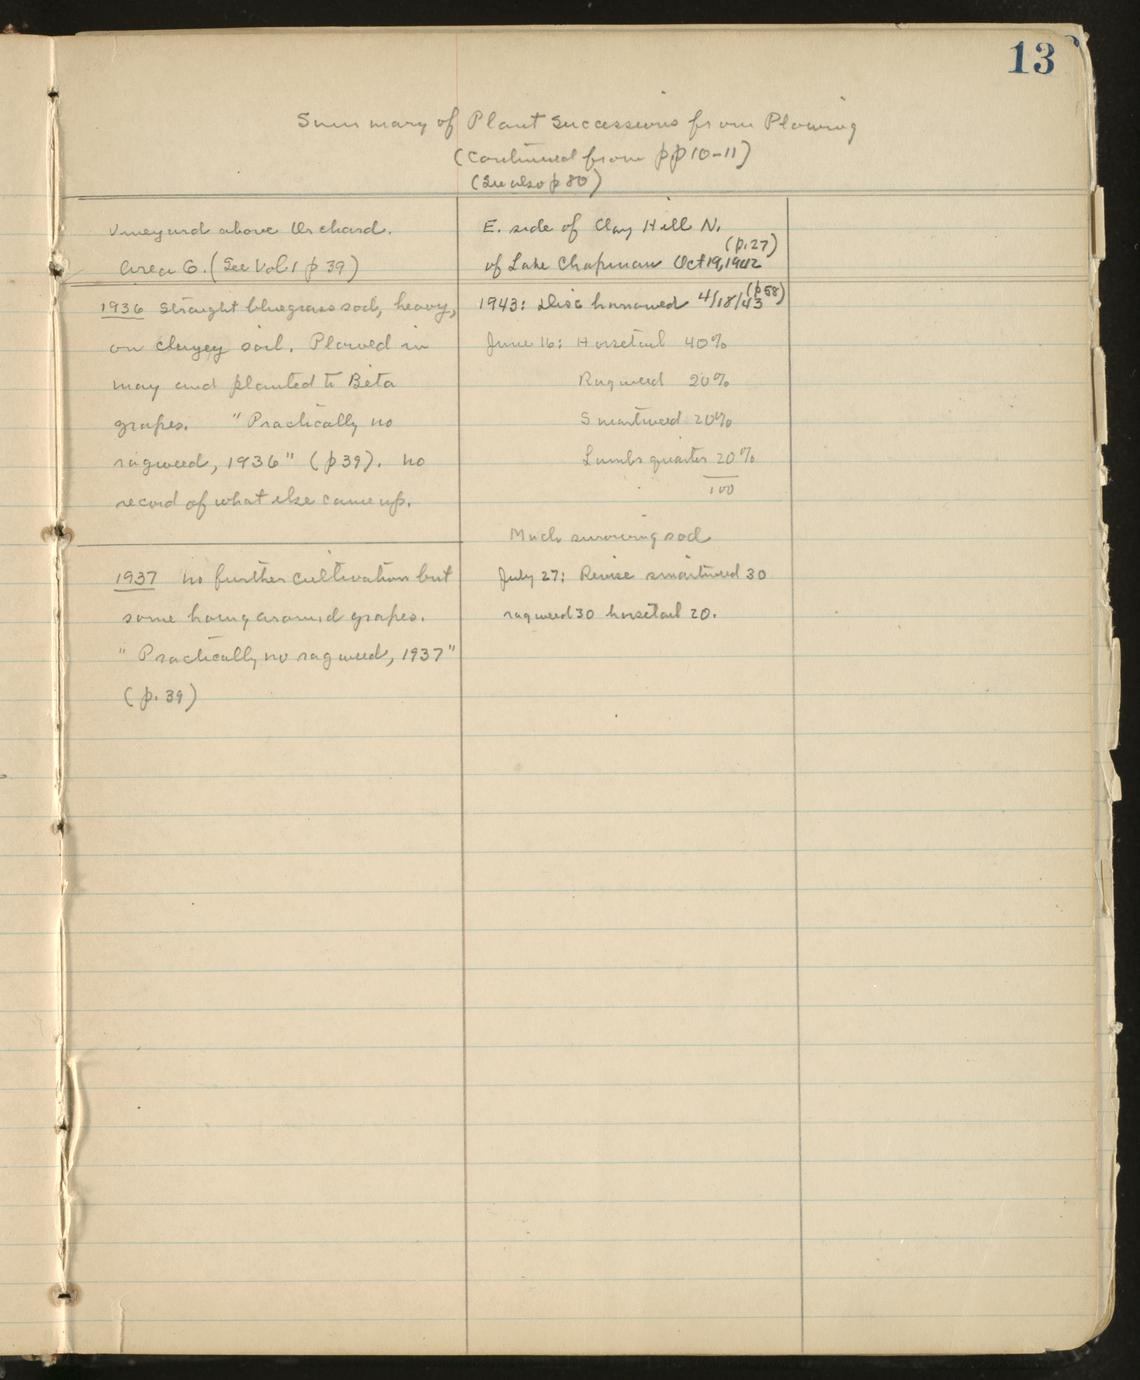 13
Summary of Plant Successions from Plowing
(Continued from pp 10-11)
(See also p 80)
Vineyard above Orchard.
Area 6. (See Vol. 1 p 39)
1936 Straight bluegrass sod, heavy,
on clayey soil. Plowed in
May and planted to Beta
grapes. "Practically no
ragweed, 1936" (p 39). No
record of what else came up.
1937 No further cultivation but
some hoeing around grapes.
"Practically no ragweed, 1937"
(p. 39)
E. side of Clay Hill N.
(p. 27)
of Lake Chapman Oct 19, 1942
(p 58)
1943: Disc harrowed 4/18/43
June 16: Horsetail 40%
Ragweed 20%
Smartweed 20%
Lambsquarter 20%
100
Much surviving sod
July 27: Revise smartweed 30
ragweed 30 horsetail 20.